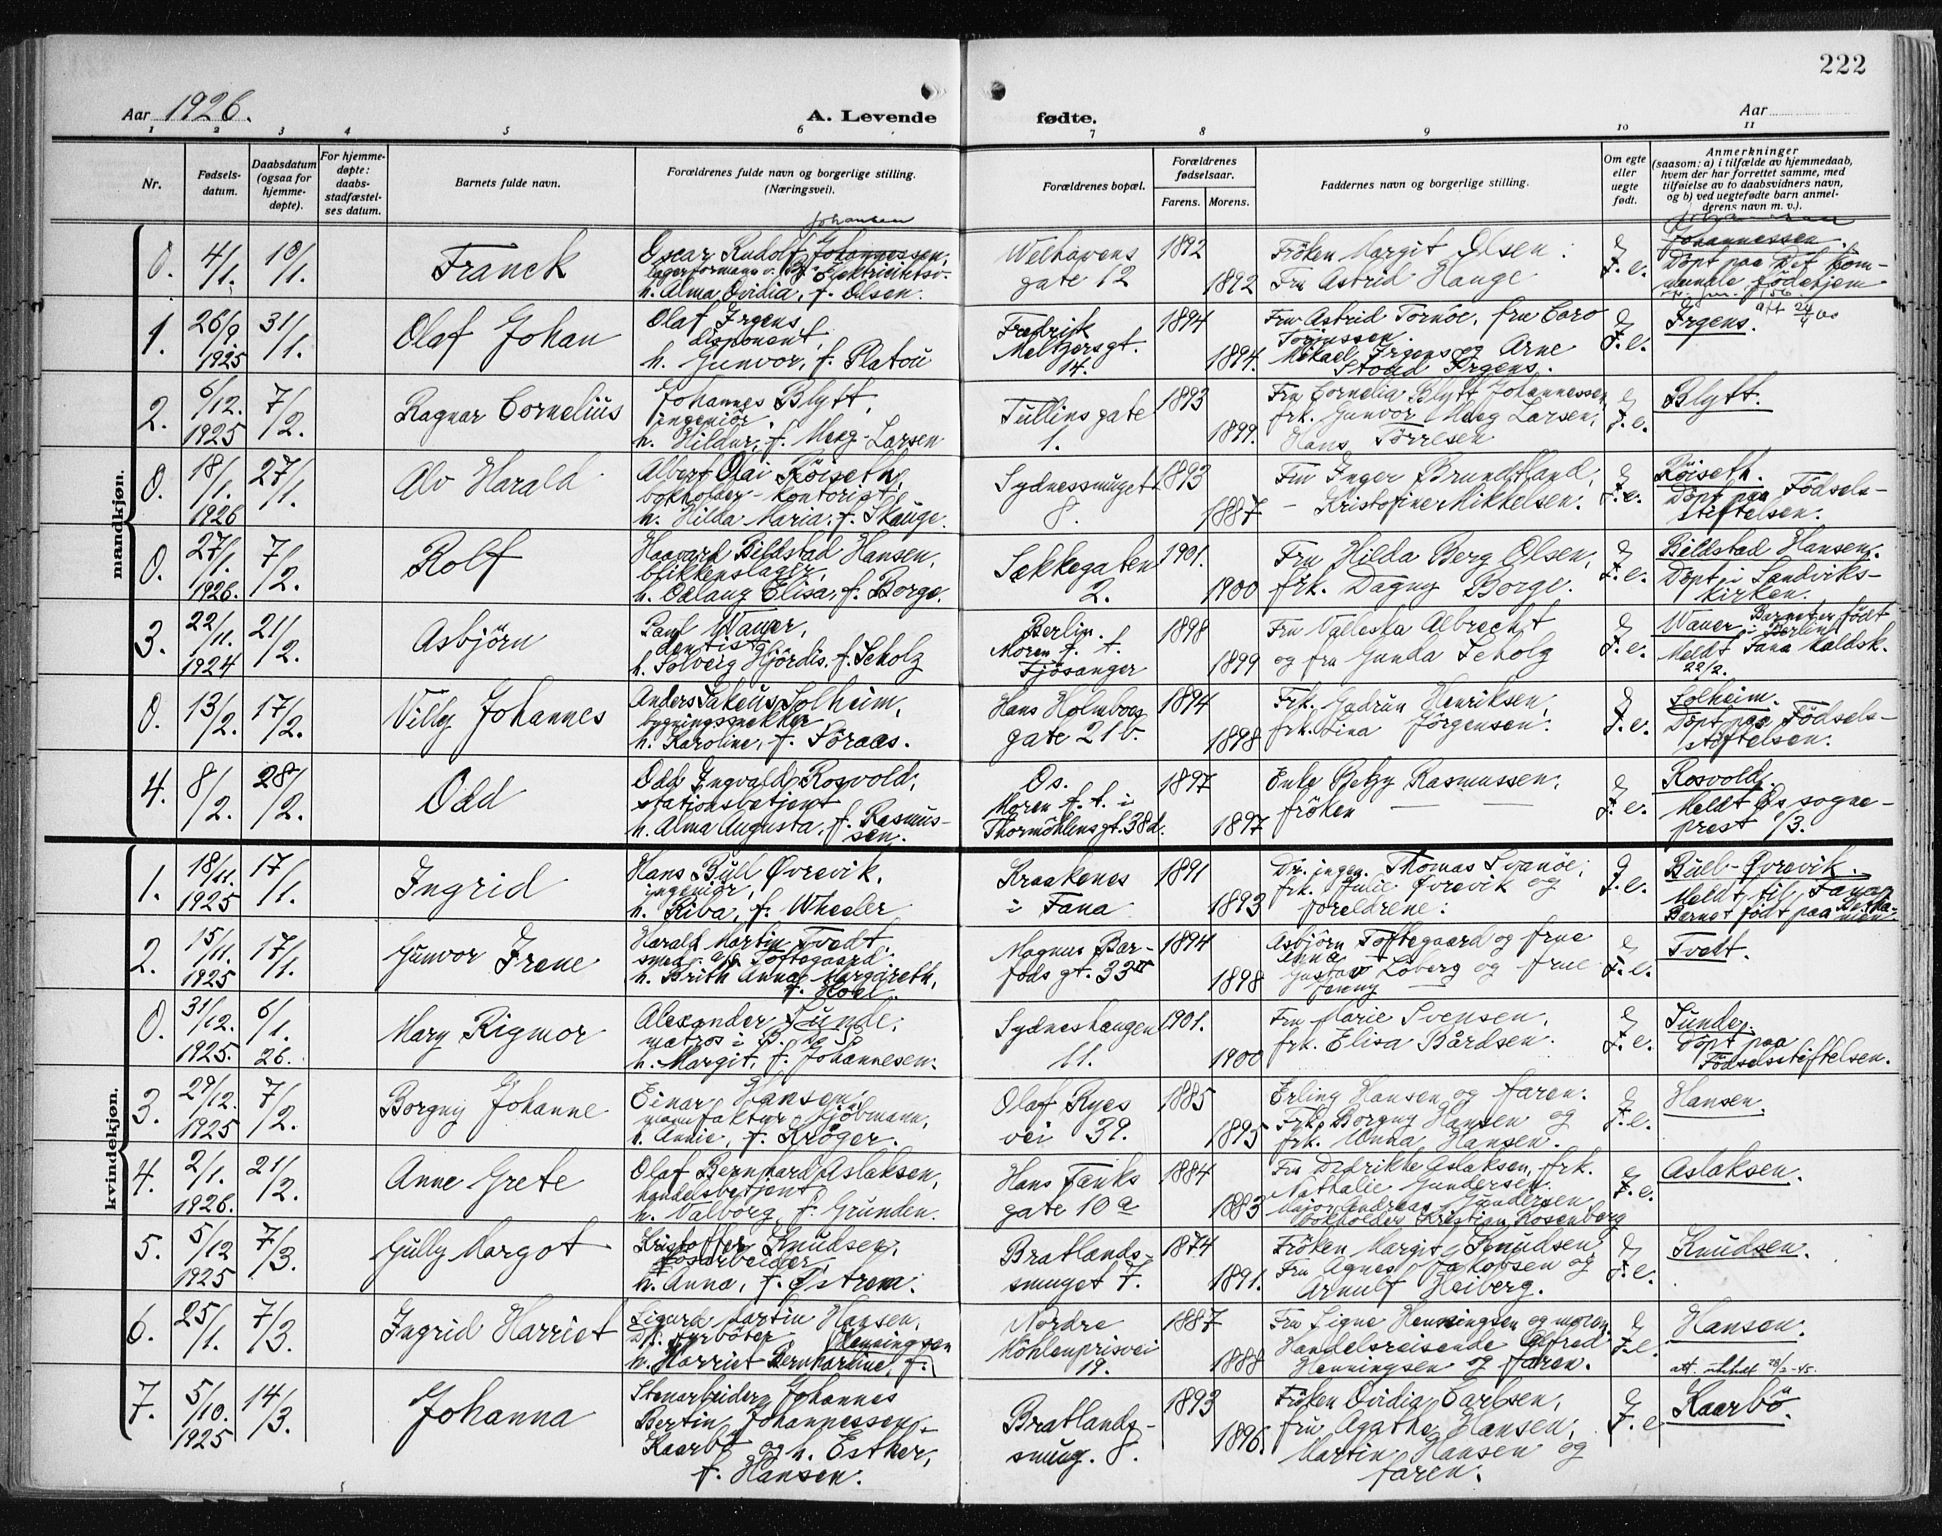 222
Aar 1926.
A. Levende fødte.
Aar
1 2 3 4 5 6 7 8 9 10 11
Nr.
Fødselsdatum.
Daabsdatum (ogsaa for hjemmedøpte).
For hjemmedøpte: daabsstadfæstelses datum.
Barnets fulde navn.
Forældrenes fulde navn og borgerlige stilling. (Næringsvei).
Forældrenes bopæl.
Forældrenes fødselsaar.
Farens. Morens.
Faddernes navn og borgerlige stilling.
Om egte eller uegte født.
Anmerkninger
(saasom: a) i tilfælde av hjemmedaab, hvem der har forrettet samme, med tilføielse av to daabsvidners navn, og b) ved uegtefødte barn anmelderens navn m. v.).
mandkjøn.
0. 4/1. 10/1. Franck
Johansen
Oscar Rudolf Johannessen,
lagerformann v. B. Elektricitetsv.
h. Alma Ovidia, f. Olsen.
Welhavens gate 12
1892 1892
Fröken Margit Olsen.
Fru Astrid Hauge
E. F. e.
Johannessen.
Döpt paa Det kommunale födehjem
1. 26/9. 1925 31/1. Olaf Johan
Olaf Irgens,
disponent,
h. Gunvor, f. Platou
Fredrik Meltzersgt. 14.
1894 1894.
Fru Astrid Tornöe, fru Caro
Mikael Irgens og Arne
Stoud Irgens.
E. F. e.
Irgens.
2. 6/12. 1925 7/2. Ragnar Cornelius
Johannes Blytt,
ingeniör.
h. Hildur, f. Meeg-Larsen
Tullins gate 1.
1893 1899.
Fru Cornelia Blytt Johannessen
frk. Gunvor Meeg Larsen,
Hans Törresen
E. F. e.
Blytt.
0. 18/1. 1926 27/1. Alv Harald
Albert Olai Röiseth,
bokholder-kontorist,
h. Hilda Maria, f. Skauge.
Sydnessmuget 8.
1893 1887
Fru Inger Brundtland,
- Kristofine Mikkelsen.
E. F. e.
Röiseth.
Döpt paa Födselsstiftelsen.
0. 27/1. 1926. 7/2. Rolf
Haavard Bildstad Hansen,
blikkenslager,
h. Odlaug Elisa, f. Borge.
Sækkegaten 2.
1901. 1900
Fru Hilda Berg Olsen,
frk. Dagny Borge.
E. F. e.
Bildstad Hansen.
Döpt i Sandvikskirken.
3. 22/11. 1924 21/2. Asbjörn
Paul Wauer,
dentist,
h. Solveig Hjördis, f. Scholz
Berlin.
Moren f. t. Fjösanger
1898 1899
Fru Valeska Albrecht
og fru Gunda Scholz
E. F. e.
Wauer. Barnet er født i Berlin
Meldt Fana kaldsk. 22/2.
0. 13/2. 17/2. Villy Johannes
Anders Sakeus Solheim,
bygningssnekker
h. Karoline, f. Söraas.
Hans Holmboes gate 21b.
1894 1898
Frk. Gudrun Henriksen,
frk. Lina Jörgensen.
E. F. e.
Solheim.
Döpt paa Födselsstiftelsen.
4. 8/2. 28/2. Odd
Odd Ingvald Rosvold,
stationsbetjent,
h. Alma Augusta, f. Rasmussen.
Os.
Moren f. t. i
Thormöhlensgt. 38d.
1897 1897
Enke Betzy Rasmussen,
fröken — —
E. F. e.
Rosvold.
Meldt Os sogneprest 1/3.
kvindekjøn.
1. 18/11. 1925 17/1. Ingrid
Hans Bull Øvrevik,
ingeniör,
h. Riba, f. Wheeler
Kraakenes i Fana
1891 1893
Dr. ingen. Thomas Svanöe,
frk. Julie Øvrevik og
foreldrene.
E. F. e.
Bull-Øvrevik.
Meldt til Fana
Barnet födt paa
2. 15/11. 1925 17/1. Gunvor Irene
Harald Martin Tvedt,
smed v. a/s Toftegaard.
h. Brith Anna Margareth,
f. Hoel.
Magnus Barfods gt. 33II
1894 1898
Asbjörn Toftegaard og frue
Anna
Gustav Löberg og frue
Jenny —
E. F. e.
Tvedt.
0. 31/12. 1925. 6/1. 26. Mary Rigmor
Alexander Sunde,
matros i B. D. S.
h. Margit, f. Johannesen.
Sydneshaugen 11.
1901. 1900
Fru Marie Svensen,
frk. Elisa Bårdsen.
E. F. e.
Sunde.
Döpt paa Födselsstiftelsen.
3. 29/12. 1925 7/2. Borgny Johanne
Einar Hansen,
manufakturgjöbmann,
h. Annie, f. Kröger.
Olaf Ryes vei 39.
1885 1895
Erling Hansen og faren.
Frk. Borgny Hansen og
frk. Unna Hansen.
E. F. e.
Hansen.
4. 2/1. 1926. 21/2. Anne Grete
Olaf Bernhard Aslaksen,
handelsbetjent,
h. Valborg, f. Grunden.
Hans Tanks gate 10a
1884 1883
Fru Dedrikke Aslaksen, frk.
Nathalie Gundersen.
Major Andreas Gundersen
Bokholder Kristian Rosenberg
E. F. e.
Aslaksen.
5. 5/12 1925 7/3. Gully Margot
Kristoffer Knudsen,
løsarbeider,
h. Anna, f. Østrem.
Bratlandssmuget 7.
1874 1891.
Fröken Margit Knudsen
Fru Agnes Jakobsen og
Arnulf Heiberg.
E. F. e.
Knudsen.
6. 25/1. 7/3. Ingrid Harriet
Sigurd Martin Hansen,
D/S. fyrböter
Henningsen
h. Harriet Bernhardine, f.
Nordre Möhlenprisvei 19.
1887 1888
Fru Signe Henningsen og moren.
Handelsreisende Alfred
Henningsen og faren.
E. F. e.
Hansen.
att. utstedt 28/2-45.
7. 5/10. 1925 14/3. Johanna
Stenarbeider Johannes
Bertin Johannessen-
Kaarbö og h. Esther,
f. Hansen.
Bratlandssmug. 8.
1893 1896.
Fröken Ovidia Carlsen,
fru Agathe Hansen,
Martin Hansen og
faren.
E. F. e
Kaarbö.